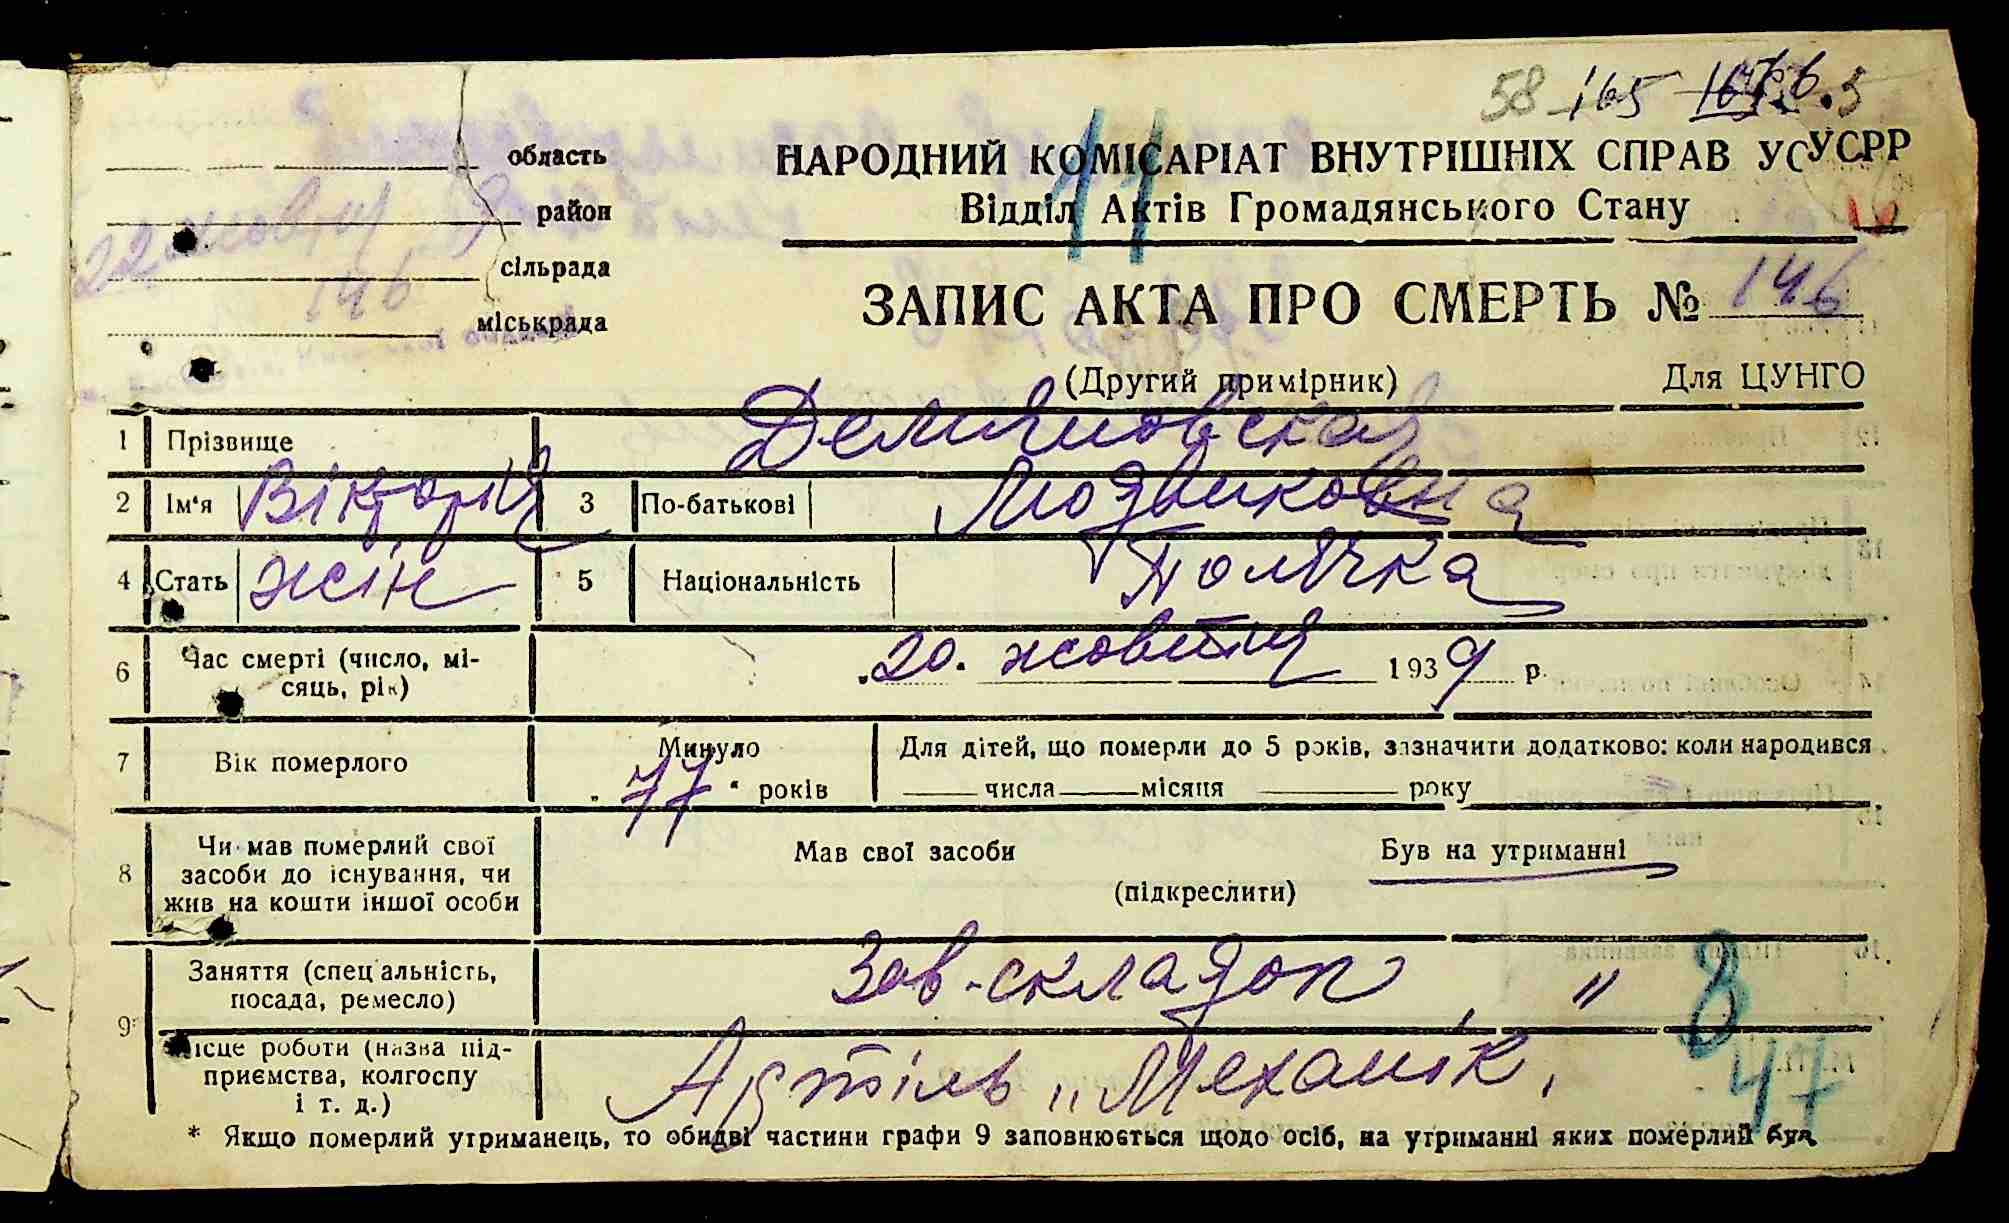 58 165
НАРОДНИЙ КОМІСАРІАТ ВНУТРІШНІХ СПРАВ УСУСРР
Відділ Актів Громадянського Стану
11
область
район
22 жовтня
сільрада
146
міськрада
ЗАПИС АКТА ПРО СМЕРТЬ № 146
(Другий примірник) Для ЦУНГО
1 Прізвище Демияновская
2 Ім'я Вікторія 3 По-батькові Людвиковна
4 Стать жін 5 Національність Полячка
6 Час смерті (число, мі-
сяць, рік) 20. жовтня 1939 р.
7 Вік померлого Минуло 77 років
Для дітей, що померли до 5 років, зазначити додатково: коли народився
числа місяця року
8 Чи мав померлий свої
засоби до існування, чи
жив на кошти іншої особи
Мав свої засоби Був на утриманні
(підкреслити)
9 Заняття (спеціальність,
посада, ремесло) Зав-складом " 8
Місце роботи (назва під-
приємства, колгоспу
і т. д.) Артіль „Механік" 47
* Якщо померлий утриманець, то обидві частини графи 9 заповнюється щодо осіб, на утриманні яких померлий був